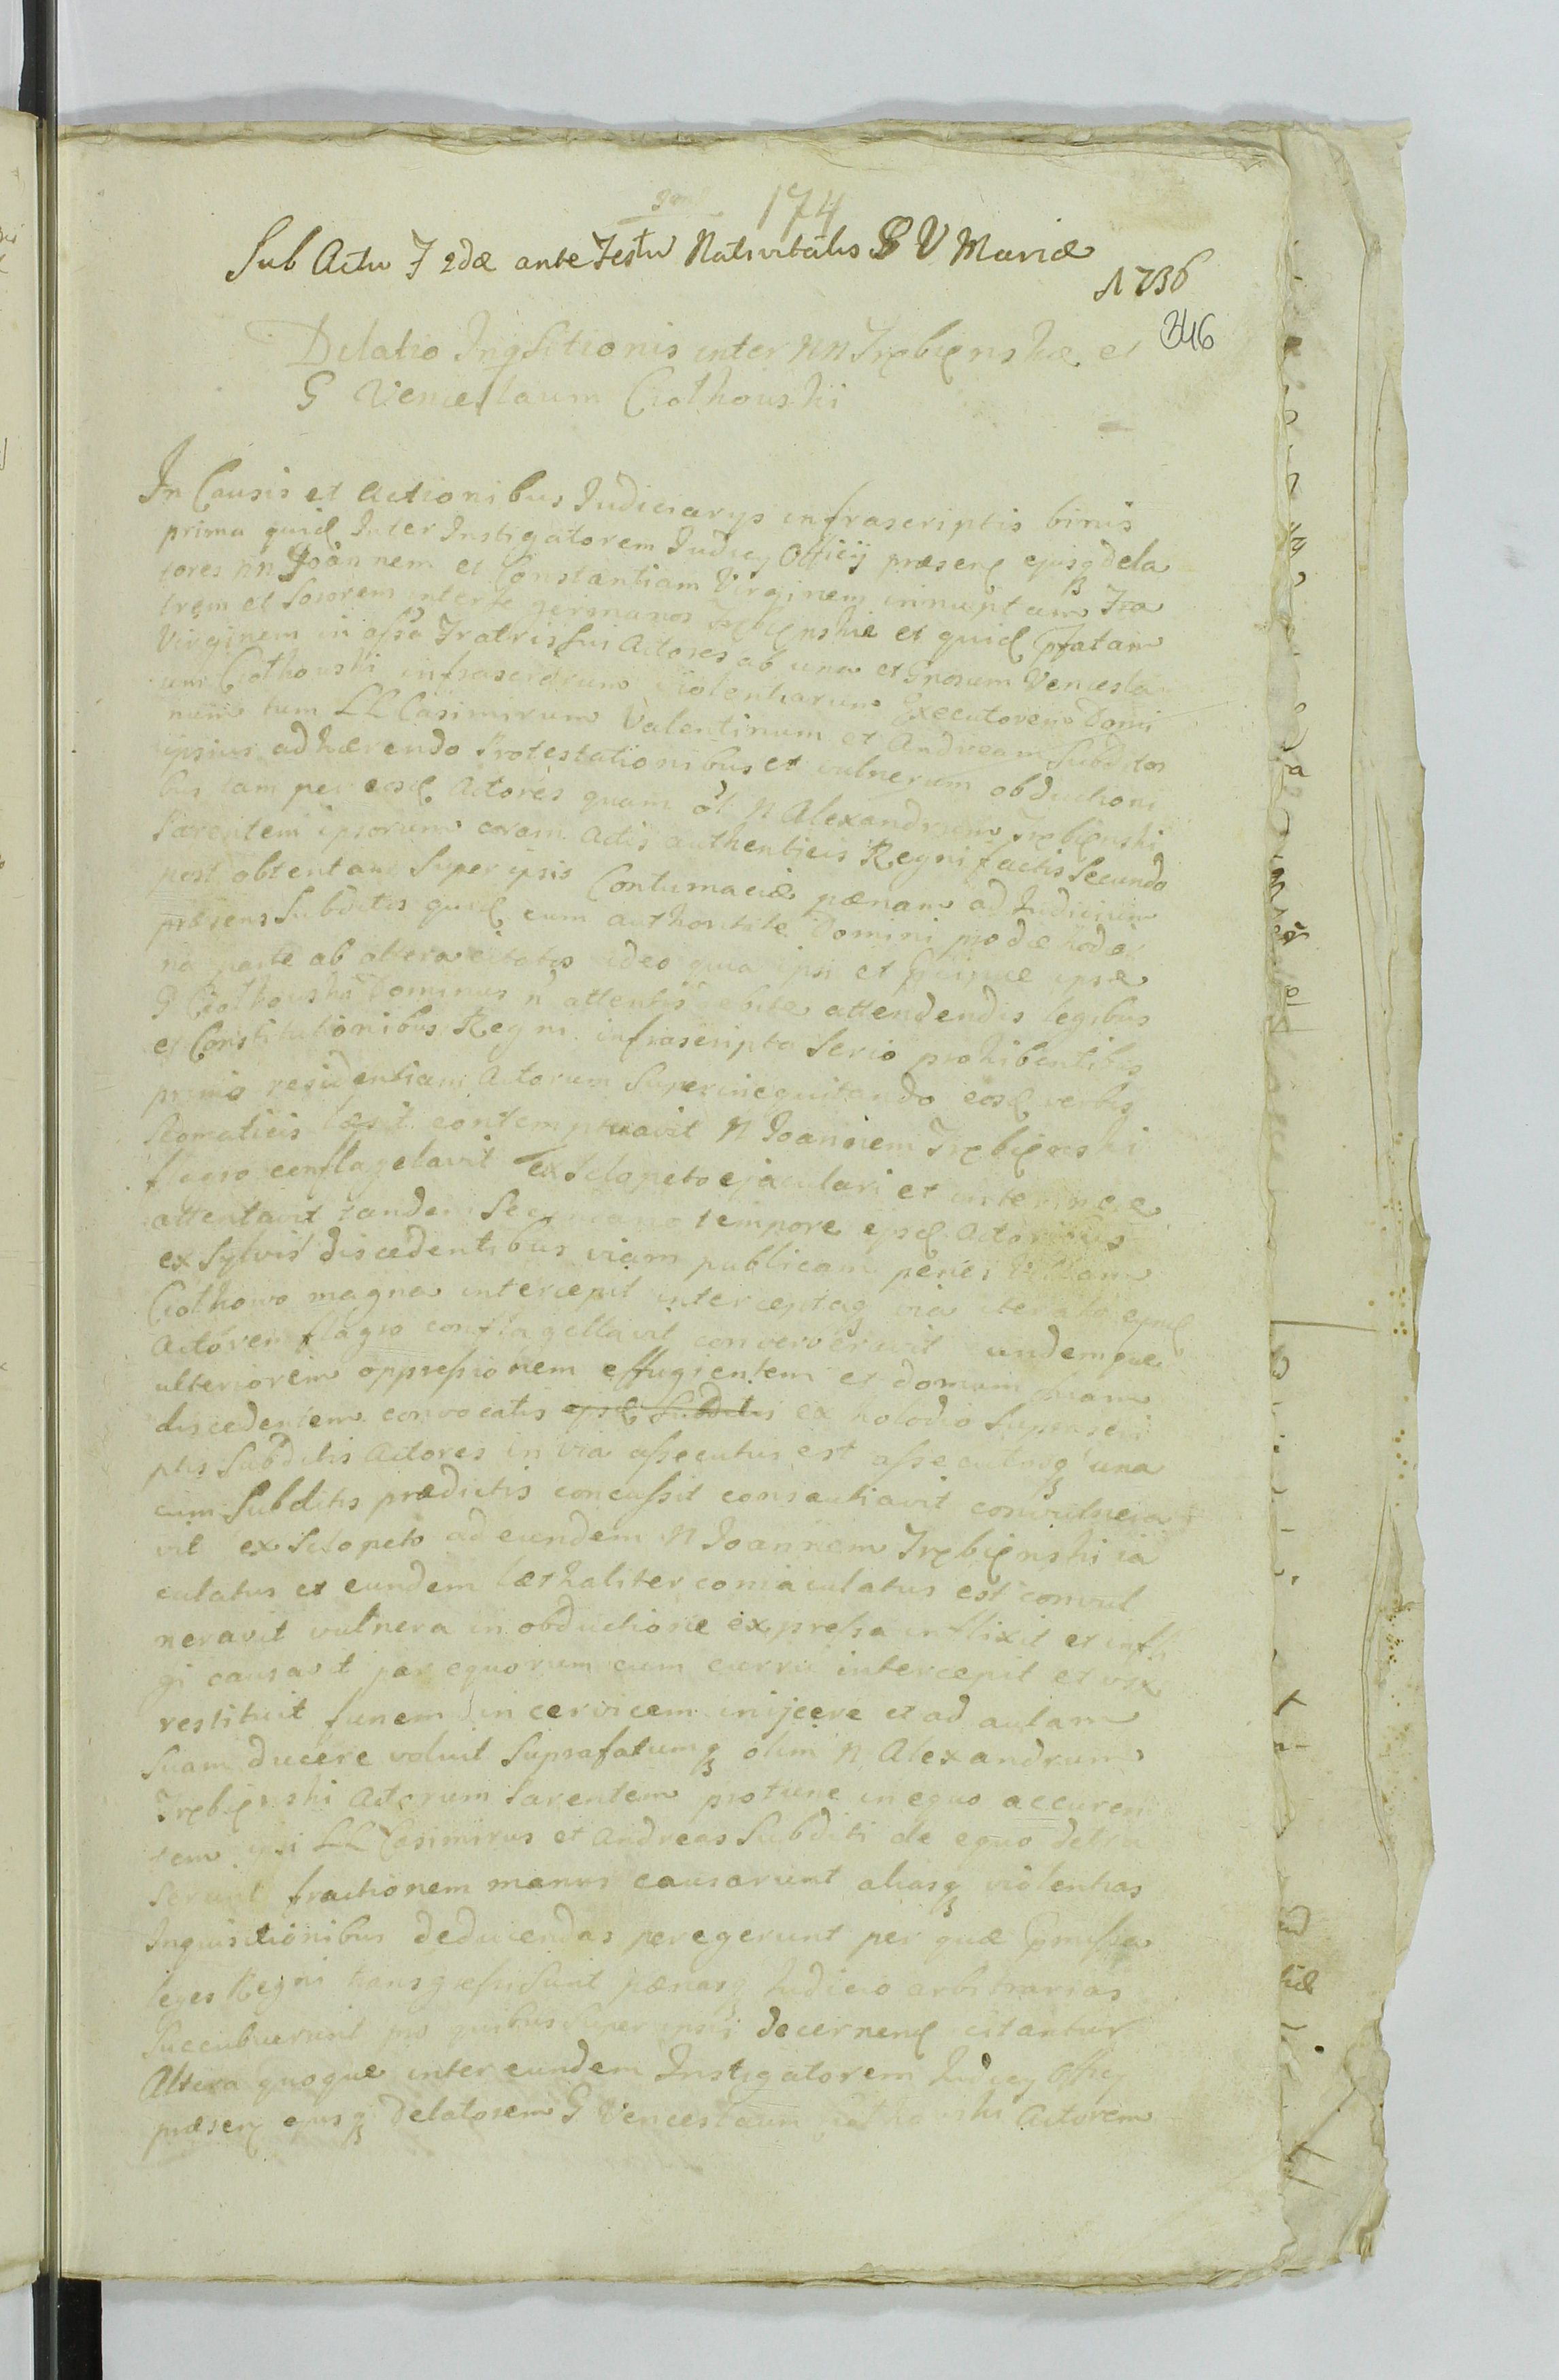 174
Sub Actu F 2dæ ante Festu Nativitatis B V Mariæ
1736
346
Dilatio Inqsitionis inter NN Trębięnskie et
G Venceslaum Ciotkowski
In Causis et Actionibus Judiciarys infrascriptis binis
prima quid Inter Instigatorem Judicy Officij præsen ejusq dela
tores NN Joannem et Constantiam Virginem innuptam Fra
trem et Sororem inter se germanos Trębięnskie et quid pfatam
Virginem in assa Fratris sui Actores ab una et Gnosum Vencesla
um Ciotkowski infrascrarum violentiarum Executorem Domi
num tum LL Casimirum Valentinum et Andream Subditos
ipsius adhærendo Protestationibus et vulnerum obductioni
bus tam per eosd Actores quam ol N Alexandrum Trębięnski
Parentem ipsorum coram Actis authenticis Regni factis Secundo
post obtentam Super ipsis Contumaciæ pænam ad Judicium
præsens Subditos quid cum authoritate Domini
na parte ab altera citatos ideo quia ipsi et ipse
G Ciotkowski Dominus n attentis debite attendendis legibus
et Constitutionibus Regni infrascripta Serio prohibentibus
primo residentiam Actorum Superinequitando eosd verbis
Scomaticis lesit contemptuavit N Joannem Trębięnski
flagro conflagelavit ex Sclopeto ejaculari et
attentavit tandem tempore Actoribus
ex Sylvis discedentibus viam publicam penes Villam
Ciotkowo magna intercepit interceptaq via iterato
Actorem flagro conflagellavit converberavit eundemque
ulteriorem oppressionem effugientem et domum suam
discedentem convocatis Subditis ex Suprascri
ptis Subditis Actores in via assecutus est assecutosq una
cum Subditis prædictis concussit consauciavit convulnera
vit ex Sclopeto ad eundem N Joannem Trębięnski ia
culatus et eundem læthaliter coniaculatus est convul
neravit vulnera in obductione expressa inflixit et infli
gi causavit par equorum cum curru intercepit et vix
restituit funem in cervicem inijcere et ad aulam
Suam ducere voluit Suprafatumq olim N Alexandrum
Trębięnski Actorum Parentem protunc in equo accuren
tem ipsi LL Casimirus et Andreas Subditi de equo detra
xerunt fractionem manus causarunt aliasq violentias
Inquisitionibus deducendas peregerunt per quæ pmissa
leges Regni transgressi sunt pænasq Judicio arbitrarias
Succubuerunt pro quibus Super ipsis decernend citantur
Altera quoque inter eundem Instigatorem Judicy Officy
præsen ejusq delatorem G Venceslaum Ciotkowski Actorem